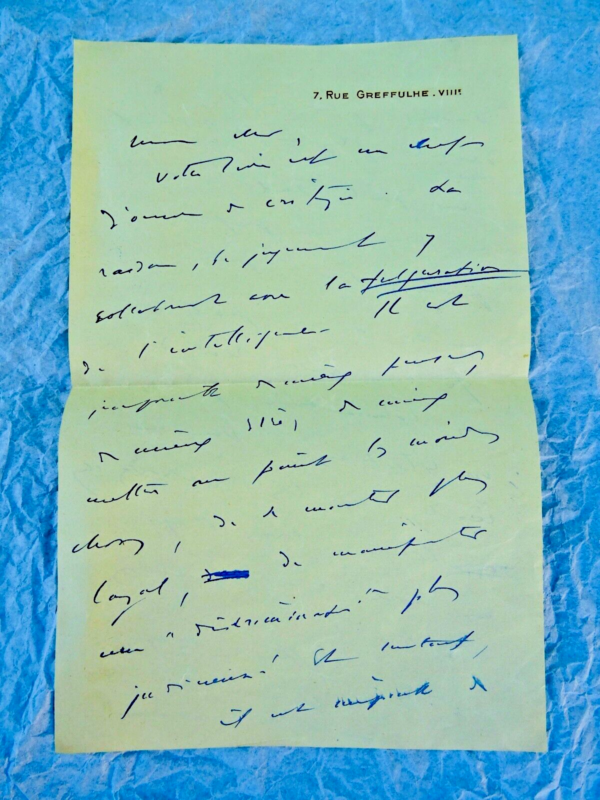 7, RUE GREFFULHE. VIIIE
mon cher,
votre livre est un chef
d'œuvre de critique. La
raison, le jugement y
collaborent avec la fulguration
de l'intelligence. Il est
impossible de mieux penser,
de mieux dire, de mieux
mettre au point les moindres
choses, de se montrer plus
loyal, de manifester
une "discrimination" plus
judicieuse! Et surtout,
il est impossible de